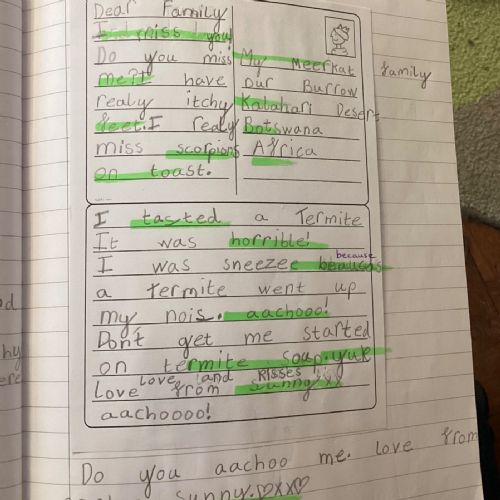 Dear Family
I miss you!
Do you miss
me? I have
realy itchy
feet. I realy
miss scorpions
on toast.
My Meerkat family
Our Burrow
Kalahari Desert
Botswana
Africa
I tasted a Termite
It was horrible!
because
I was sneezee
a termite went up
my nois. aachooo!
Don't get me started
on termite soup. yuk
Love and kisses
Love from Sunny xx
aachoooo!
Do you aachoo me. love from
Sunny.♡xx♡